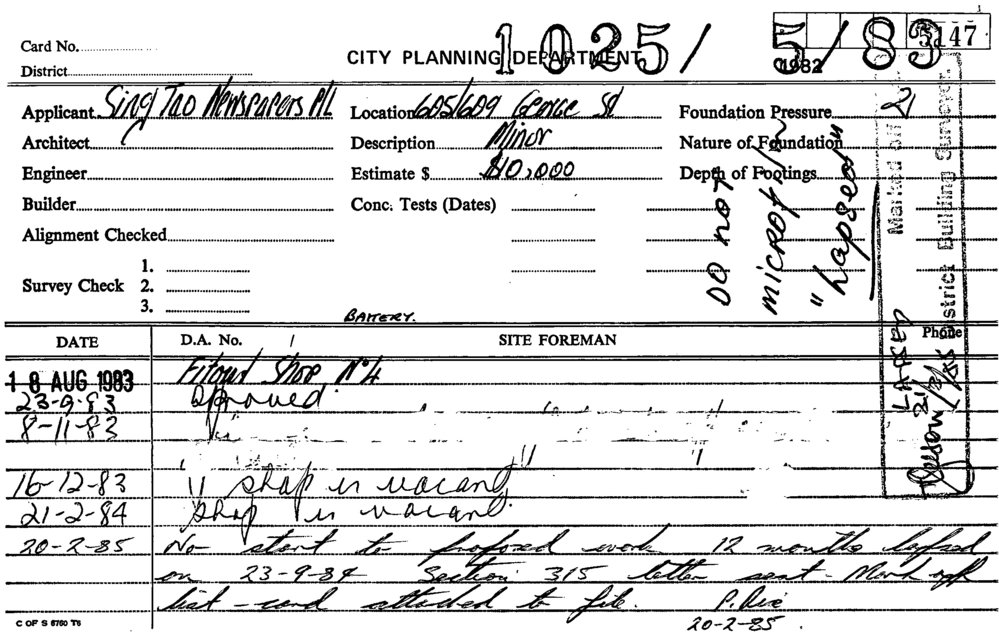 1025/ 5/83
5147
Card No.
CITY PLANNING DEPARTMENT
1982
District
Applicant Sing Tao Newspapers P/L Location 605/609 George St Foundation Pressure 21
Architect Description Minor Nature of Foundation
Engineer Estimate $ $10,000 Depth of Footings
Builder Conc. Tests (Dates)
Alignment Checked
Survey Check 1.
2.
3.
DO NOT
microfilm
"Lapsed"
Marked off
District Building Surveyor.
LAPSED
21/3/85
BAKERY.
DATE D.A. No. SITE FOREMAN Phone
18 AUG 1983 Fitout Shop No 4
23-9-83 Approved
8-11-83
16-12-83 " shop is vacant"
21-2-84 Shop is vacant.
20-2-85 No start to proposed work 12 months lapsed
on 23-9-84 Section 315 letter sent - Mark off
list - card attached to file.
20-2-85.
C OF S 8760 T6